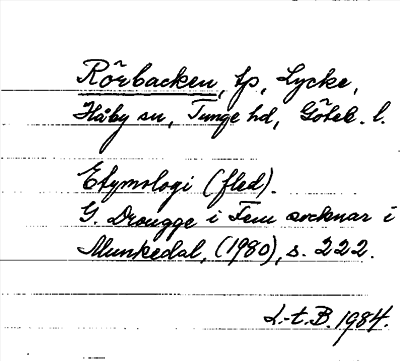 Rörbacken, tp, Lycke,
Håby sn, Tunge hd, Göteb. l.
Etymologi (fled).
G. Drougge i Fem socknar i
Munkedal, (1980), s. 222.
L.-t. B. 1984.